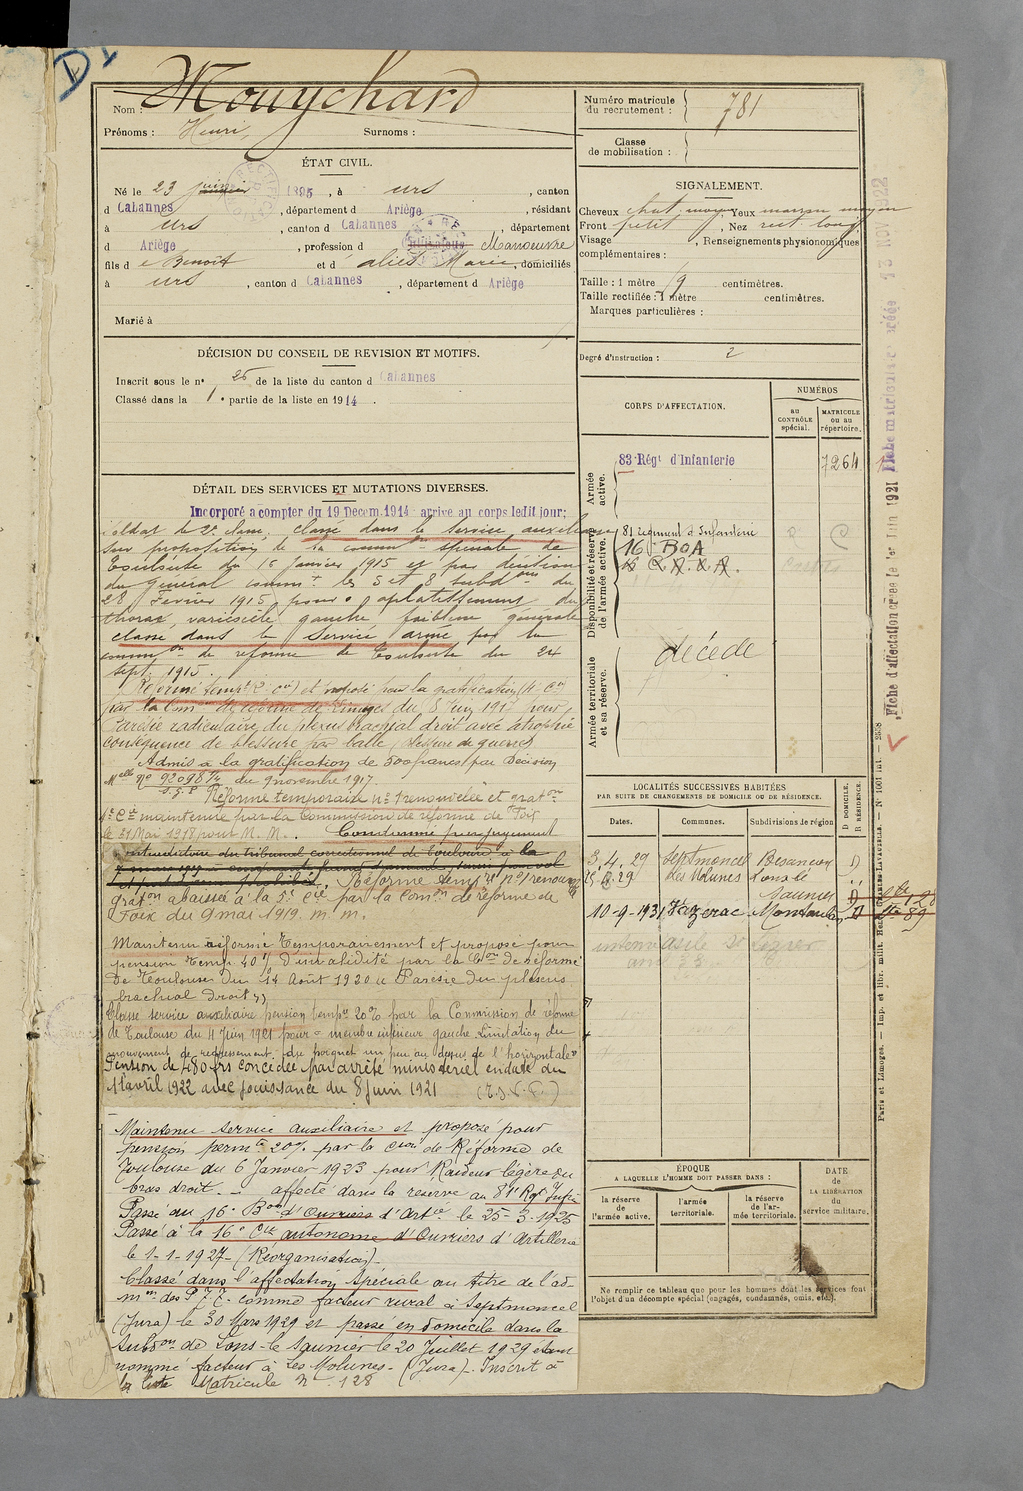 D1
Nom : Mouychard
Prénoms : Henri, Surnoms :
ÉTAT CIVIL.
Né le 23 juin 1895, à urs, canton
d Cabannes, département d Ariège, résidant
à urs, canton d Cabannes, département
d Ariège, profession d Manœuvre
fils d e Benoît et d alies Marie, domiciliés
à urs, canton d Cabannes, département d Ariège
Marié à
DÉCISION DU CONSEIL DE REVISION ET MOTIFS.
Inscrit sous le n° 25 de la liste du canton d Cabannes
Classé dans la 1e partie de la liste en 1914.
DÉTAIL DES SERVICES ET MUTATIONS DIVERSES.
Incorporé a compter du 19 Decem. 1914 arrive au corps ledit jour;
soldat de 2e classe, classé dans le service auxiliaire
sur proposition de la comm on spéciale de
Toulouse du 16 janvier 1915 et par décision
du général comm t les 5 et 8 subd ons du
28 Février 1915, pour aplatissement du
thorax, varicocèle gauche, faiblesse générale
classé dans le service armé par la
comm on de réforme de Toulouse du 24
sept. 1915.
Réformé temp re (2e Cie) et proposé pour la gratification (4e Cie)
par la Com on de réforme de Limoges du 8 juin 1917 pour
Parésie radiculaire du plexus brachial droit avec atrophie
conséquence de blessure par balle (blessure de guerre)
Admis à la gratification de 500 francs par Décision
M elle N° 92098 du 9 novembre 1917
Réforme temporaire n° 1 renouvelée et grat on
4e C ie maintenue par la Commission de réforme de Foix
le 21 Mai 1918 pour M. M. Condamné par jugement
contradictoire du tribunal correctionnel de Toulouse à la
Réforme temp re n° 1 renouv
grat on abaissée à la 5e C ie par la Com on de réforme de
Foix du 9 mai 1919. m. m.
Maintenu réformé Temporairement et proposé pour
pension temp. 40% d'invalidité par la C on de réforme
de Toulouse du 14 Août 1920 « Parésie du plexus
brachial droit »
Classé service auxiliaire pension temp re 20% par la Commission de réforme
de Toulouse du 4 Juin 1921 pour = membre inférieur gauche. Limitation du
mouvement de redressement du poignet un peu au dessus de l'horizontale
Pension de 480 frs concédée par arrêté ministériel en date du
11 avril 1922 avec jouissance du 8 juin 1921
Maintenu service auxiliaire et proposé pour
pension perm te 20% par la C ion de Réforme de
Toulouse du 6 Janvier 1923 pour Raideur légère du
bras droit. — affecté dans la réserve au 81e Rgt Infie
Passé au 16e B on d'Ouvriers d'Art ie le 25-3-1925
Passé à la 16e Cie autonome d'Ouvriers d'Artillerie
le 1-1-1927 - (Réorganisation)
Classé dans l'affectation spéciale au titre de l'ad-
m on des P.T.T. comme facteur rural à Septmoncel
(Jura) le 30 Mars 1929 et passé en domicile dans la
Subd on de Lons-le-Saunier le 20 Juillet 1929 étant
nommé facteur à Les Molunes - (Jura). Inscrit à
la liste Matricule N° 128
Numéro matricule du recrutement : 781
Classe de mobilisation :
SIGNALEMENT.
Cheveux chat. moyen Yeux marron moyen
Front petit, Nez rect. long
Visage , Renseignements physionomiques
complémentaires :
Taille : 1 mètre 79 centimètres.
Taille rectifiée : 1 mètre centimètres.
Marques particulières :
Degré d'instruction : 2
CORPS D'AFFECTATION.
NUMÉROS
AU CONTRÔLE spécial.
MATRICULE OU AU répertoire.
Armée active.
83e Régt d'Infanterie 7264
Disponibilité et réserve de l'armée active.
81 régiment d'Infanterie
16e B O A
16 C. A. O. A.
Armée territoriale et sa réserve.
décédé
LOCALITÉS SUCCESSIVES HABITÉES
PAR SUITE DE CHANGEMENTS DE DOMICILE OU DE RÉSIDENCE.
Dates. Communes. Subdivisions de région. D DOMICILE. R RÉSIDENCE.
3.4.29 Septmoncel Besancon D
Les Molunes Lons le
Saunier D
10-9-1931 Mazerac Montauban D
interné asile St
ÉPOQUE
A LAQUELLE L'HOMME DOIT PASSER DANS :
la réserve de l'armée active.
l'armée territoriale.
la réserve de l'armée territoriale.
DATE de LA LIBÉRATION du service militaire.
Ne remplir ce tableau que pour les hommes dont les services font
l'objet d'un décompte spécial (engagés, condamnés, omis, etc.).
Fiche d'affectation créée le 1er Juin 1921
Fiche matriculaire créée 13 NOV 1922
Paris et Limoges. — Imp. et libr. milit. Henri Charles-Lavauzelle. — N° 1001 int. — 2558